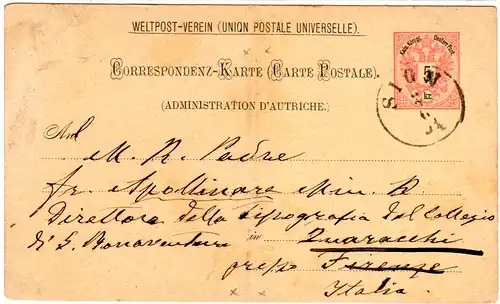 WELTPOST-VEREIN (UNION POSTALE UNIVERSELLE).
CORRESPONDENZ-KARTE (CARTE POSTALE).
(ADMINISTRATION D'AUTRICHE.)
5
SIGN
An
M. R. Padre
fr. Apollinare Min. R
Direttore della Tipografia del Collegio
di S. Bonaventura in Quaracchi
presso Firenze
Italia